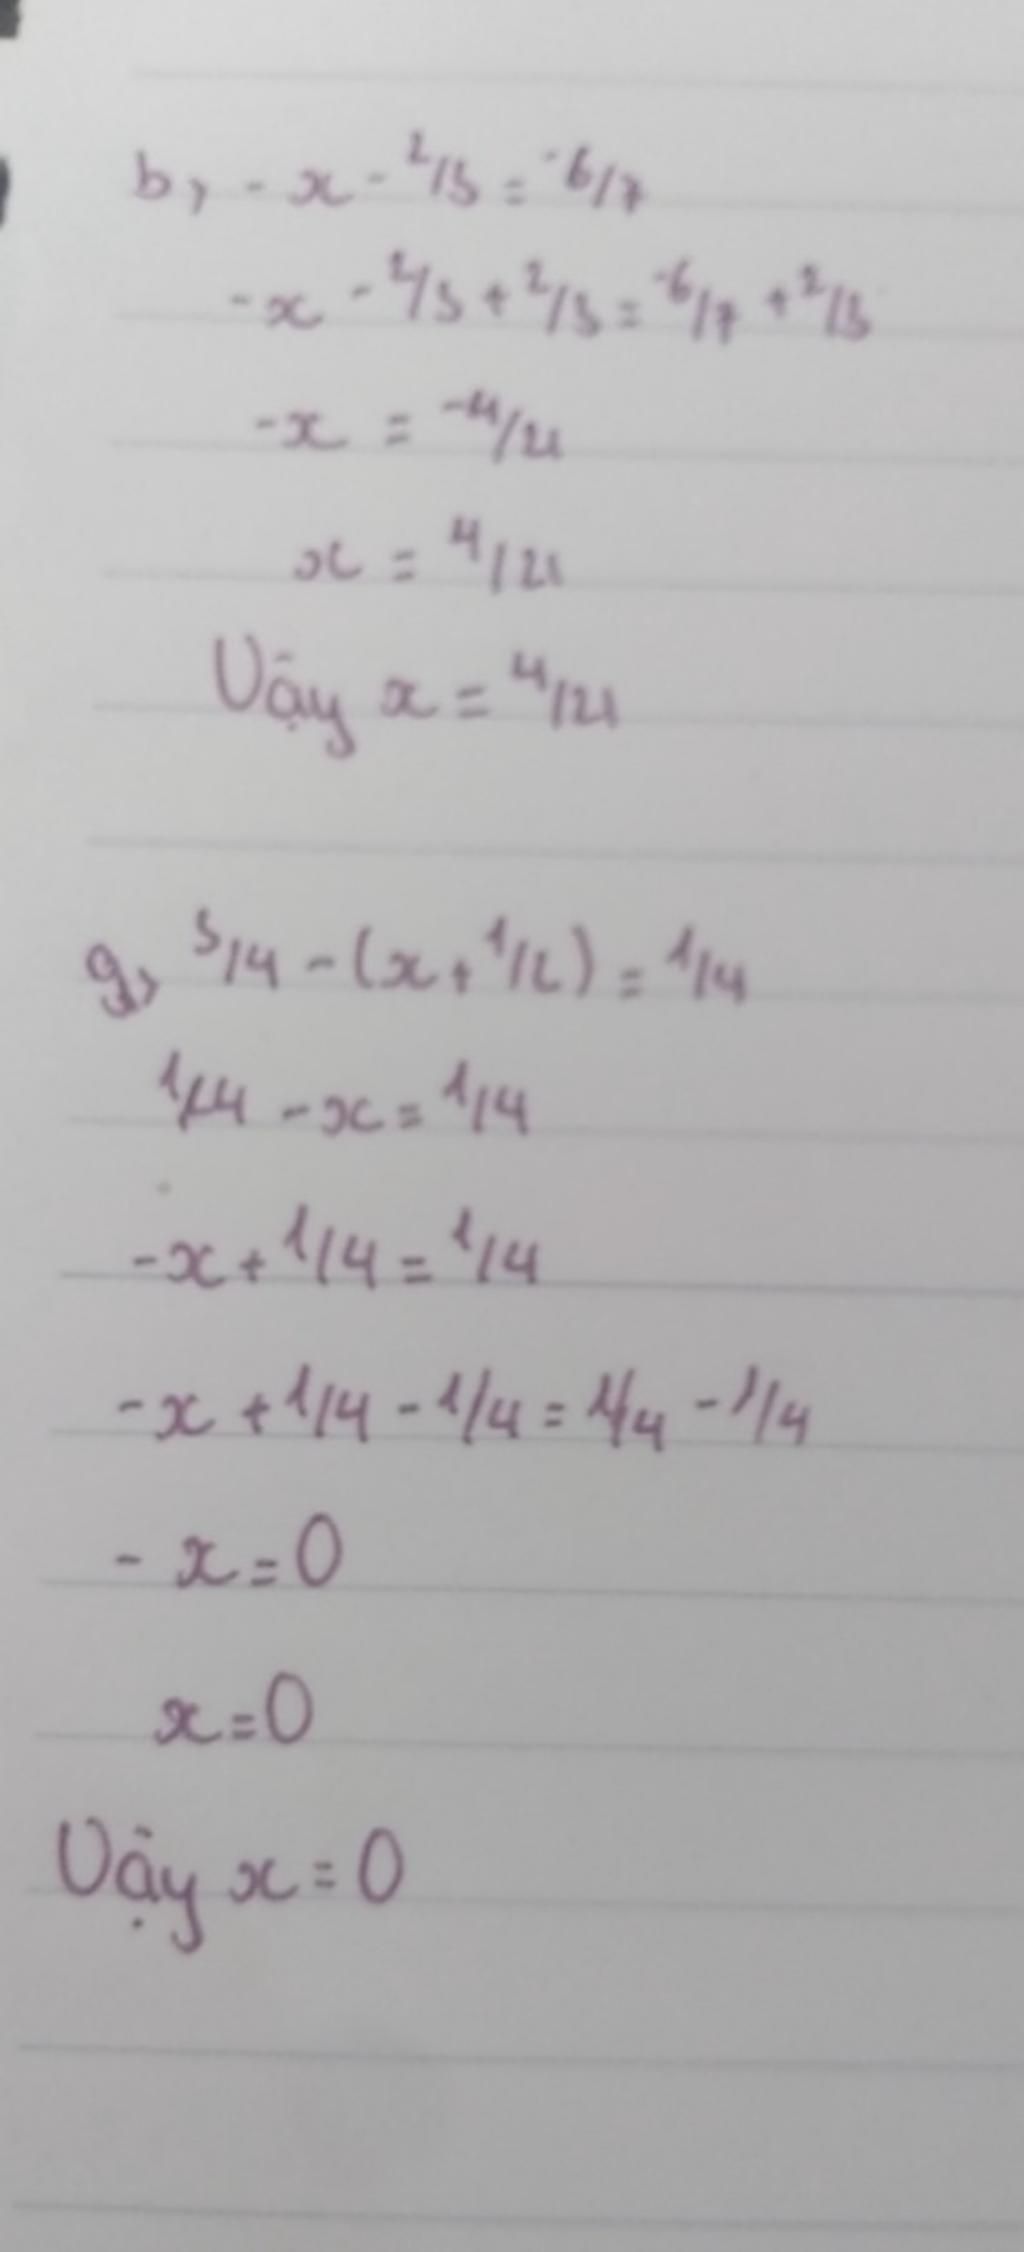 b, -x - 2/3 = -6/7
-x - 2/3 + 2/3 = -6/7 + 2/3
-x = -4/21
x = 4/21
Vậy x = 4/21
g, 3/4 - (x + 1/2) = 1/4
1/4 - x = 1/4
-x + 1/4 = 1/4
-x + 1/4 - 1/4 = 1/4 - 1/4
- x = 0
x = 0
Vậy x = 0